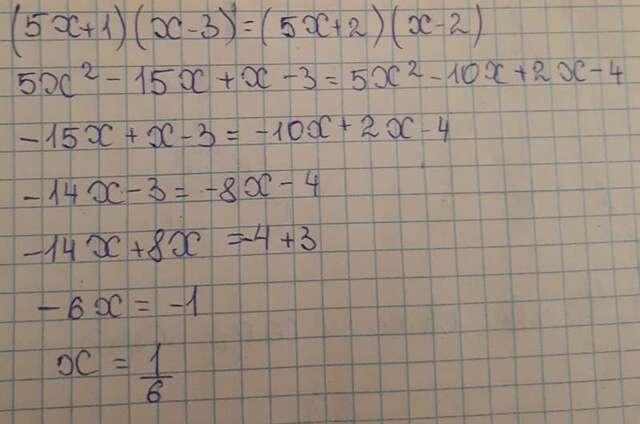 (5x+1)(x-3)=(5x+2)(x-2)
5x²-15x+x-3=5x²-10x+2x-4
-15x+x-3=-10x+2x-4
-14x-3=-8x-4
-14x+8x=-4+3
-6x=-1
x=1/6